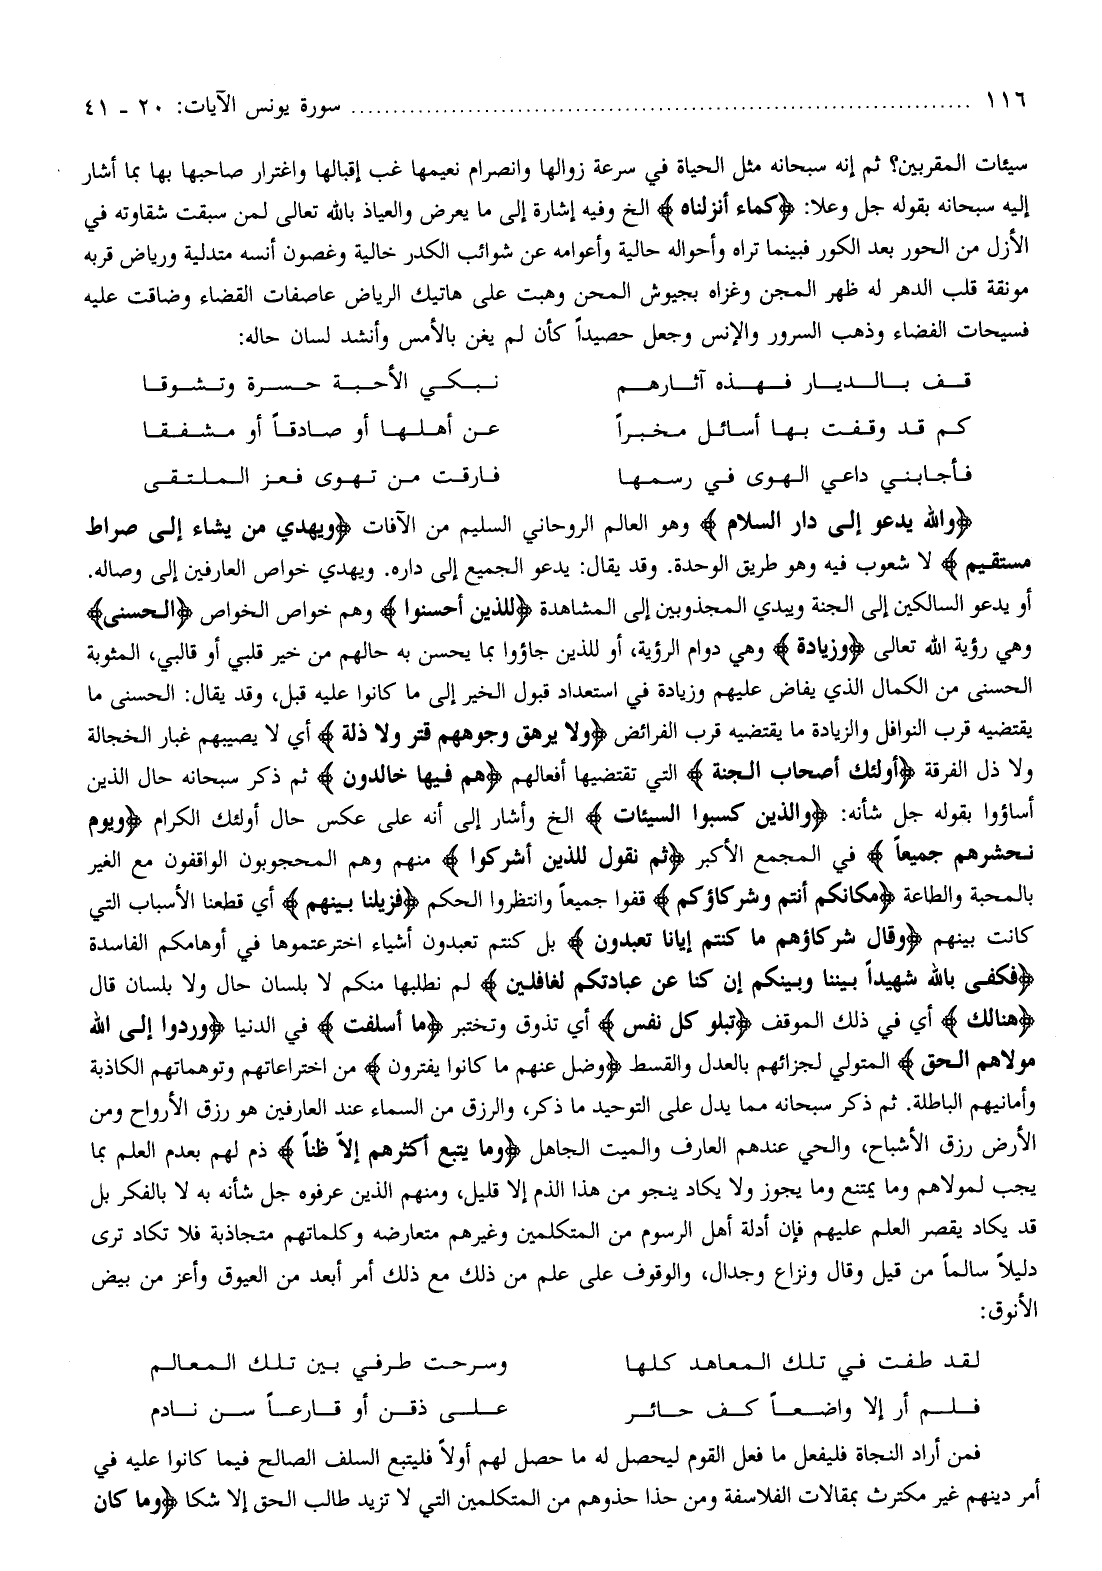 ١١٦ ........................................................................ سورة يونس الآيات: ٢٠ - ٤١
سيئات المقربين؟ ثم إنه سبحانه مثل الحياة في سرعة زوالها وانصرام نعيمها غب إقبالها واغترار صاحبها بها بما أشار
إليه سبحانه بقوله جل وعلا: ﴿كماء أنزلناه﴾ الخ وفيه إشارة إلى ما يعرض والعياذ بالله تعالى لمن سبقت شقاوته في
الأزل من الحور بعد الكور فبينما تراه وأحواله حالية وأعوامه عن شوائب الكدر خالية وغصون أنسه متدلية ورياض قربه
مونقة قلب الدهر له ظهر المجن وغزاه بجيوش المحن وهبت على هاتيك الرياض عاصفات القضاء وضاقت عليه
فسيحات الفضاء وذهب السرور والإنس وجعل حصيداً كأن لم يغن بالأمس وأنشد لسان حاله:
قف بالديار فهذه آثارهم نبكي الأحبة حسرة وتشوقا
كم قد وقفت بها أسائل مخبراً عن أهلها أو صادقاً أو مشفقا
فأجابني داعي الهوى في رسمها فارقت من تهوى فعز الملتقى
﴿والله يدعو إلى دار السلام﴾ وهو العالم الروحاني السليم من الآفات ﴿ويهدي من يشاء إلى صراط
مستقيم﴾ لا شعوب فيه وهو طريق الوحدة. وقد يقال: يدعو الجميع إلى داره. ويهدي خواص العارفين إلى وصاله.
أو يدعو السالكين إلى الجنة ويبدي المجذوبين إلى المشاهدة ﴿للذين أحسنوا﴾ وهم خواص الخواص ﴿الحسنى﴾
وهي رؤية الله تعالى ﴿وزيادة﴾ وهي دوام الرؤية، أو للذين جاؤوا بما يحسن به حالهم من خير قلبي أو قالبي، المثوبة
الحسنى من الكمال الذي يفاض عليهم وزيادة في استعداد قبول الخير إلى ما كانوا عليه قبل، وقد يقال: الحسنى ما
يقتضيه قرب النوافل والزيادة ما يقتضيه قرب الفرائض ﴿ولا يرهق وجوههم قتر ولا ذلة﴾ أي لا يصيبهم غبار الخجالة
ولا ذل الفرقة ﴿أولئك أصحاب الجنة﴾ التي تقتضيها أفعالهم ﴿هم فيها خالدون﴾ ثم ذكر سبحانه حال الذين
أساؤوا بقوله جل شأنه: ﴿والذين كسبوا السيئات﴾ الخ وأشار إلى أنه على عكس حال أولئك الكرام ﴿ويوم
نحشرهم جميعاً﴾ في المجمع الأكبر ﴿ثم نقول للذين أشركوا﴾ منهم وهم المحجوبون الواقفون مع الغير
بالمحبة والطاعة ﴿مكانكم أنتم وشركاؤكم﴾ قفوا جميعاً وانتظروا الحكم ﴿فزيلنا بينهم﴾ أي قطعنا الأسباب التي
كانت بينهم ﴿وقال شركاؤهم ما كنتم إيانا تعبدون﴾ بل كنتم تعبدون أشياء اخترعتموها في أوهامكم الفاسدة
﴿فكفى بالله شهيداً بيننا وبينكم إن كنا عن عبادتكم لغافلين﴾ لم نطلبها منكم لا بلسان حال ولا بلسان قال
﴿هنالك﴾ أي في ذلك الموقف ﴿تبلو كل نفس﴾ أي تذوق وتختبر ﴿ما أسلفت﴾ في الدنيا ﴿وردوا إلى الله
مولاهم الحق﴾ المتولي لجزائهم بالعدل والقسط ﴿وضل عنهم ما كانوا يفترون﴾ من اختراعاتهم وتوهماتهم الكاذبة
وأمانيهم الباطلة. ثم ذكر سبحانه مما يدل على التوحيد ما ذكر، والرزق من السماء عند العارفين هو رزق الأرواح ومن
الأرض رزق الأشباح، والحي عندهم العارف والميت الجاهل ﴿وما يتبع أكثرهم إلاّ ظناً﴾ ذم لهم بعدم العلم بما
يجب لمولاهم وما يمتنع وما يجوز ولا يكاد ينجو من هذا الذم إلا قليل، ومنهم الذين عرفوه جل شأنه به لا بالفكر بل
قد يكاد يقصر العلم عليهم فإن أدلة أهل الرسوم من المتكلمين وغيرهم متعارضه وكلماتهم متجاذبة فلا تكاد ترى
دليلاً سالماً من قيل وقال ونزاع وجدال، والوقوف على علم من ذلك مع ذلك أمر أبعد من العيوق وأعز من بيض
الأنوق:
لقد طفت في تلك المعاهد كلها وسرحت طرفي بين تلك المعالم
فلم أر إلا واضعاً كف حائر على ذقن أو قارعاً سن نادم
فمن أراد النجاة فليفعل ما فعل القوم ليحصل له ما حصل لهم أولاً فليتبع السلف الصالح فيما كانوا عليه في
أمر دينهم غير مكترث بمقالات الفلاسفة ومن حذا حذوهم من المتكلمين التي لا تزيد طالب الحق إلا شكا ﴿وما كان